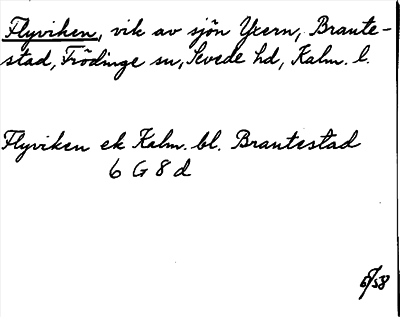 Flyviken, vik av sjön Yxern, Brante-
stad, Frödinge sn, Sevede hd, Kalm. l.
Flyviken ek Kalm. bl. Brantestad
6 G 8 d